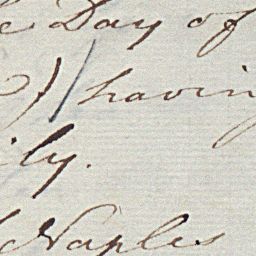 Day of
having
ily.
Naples